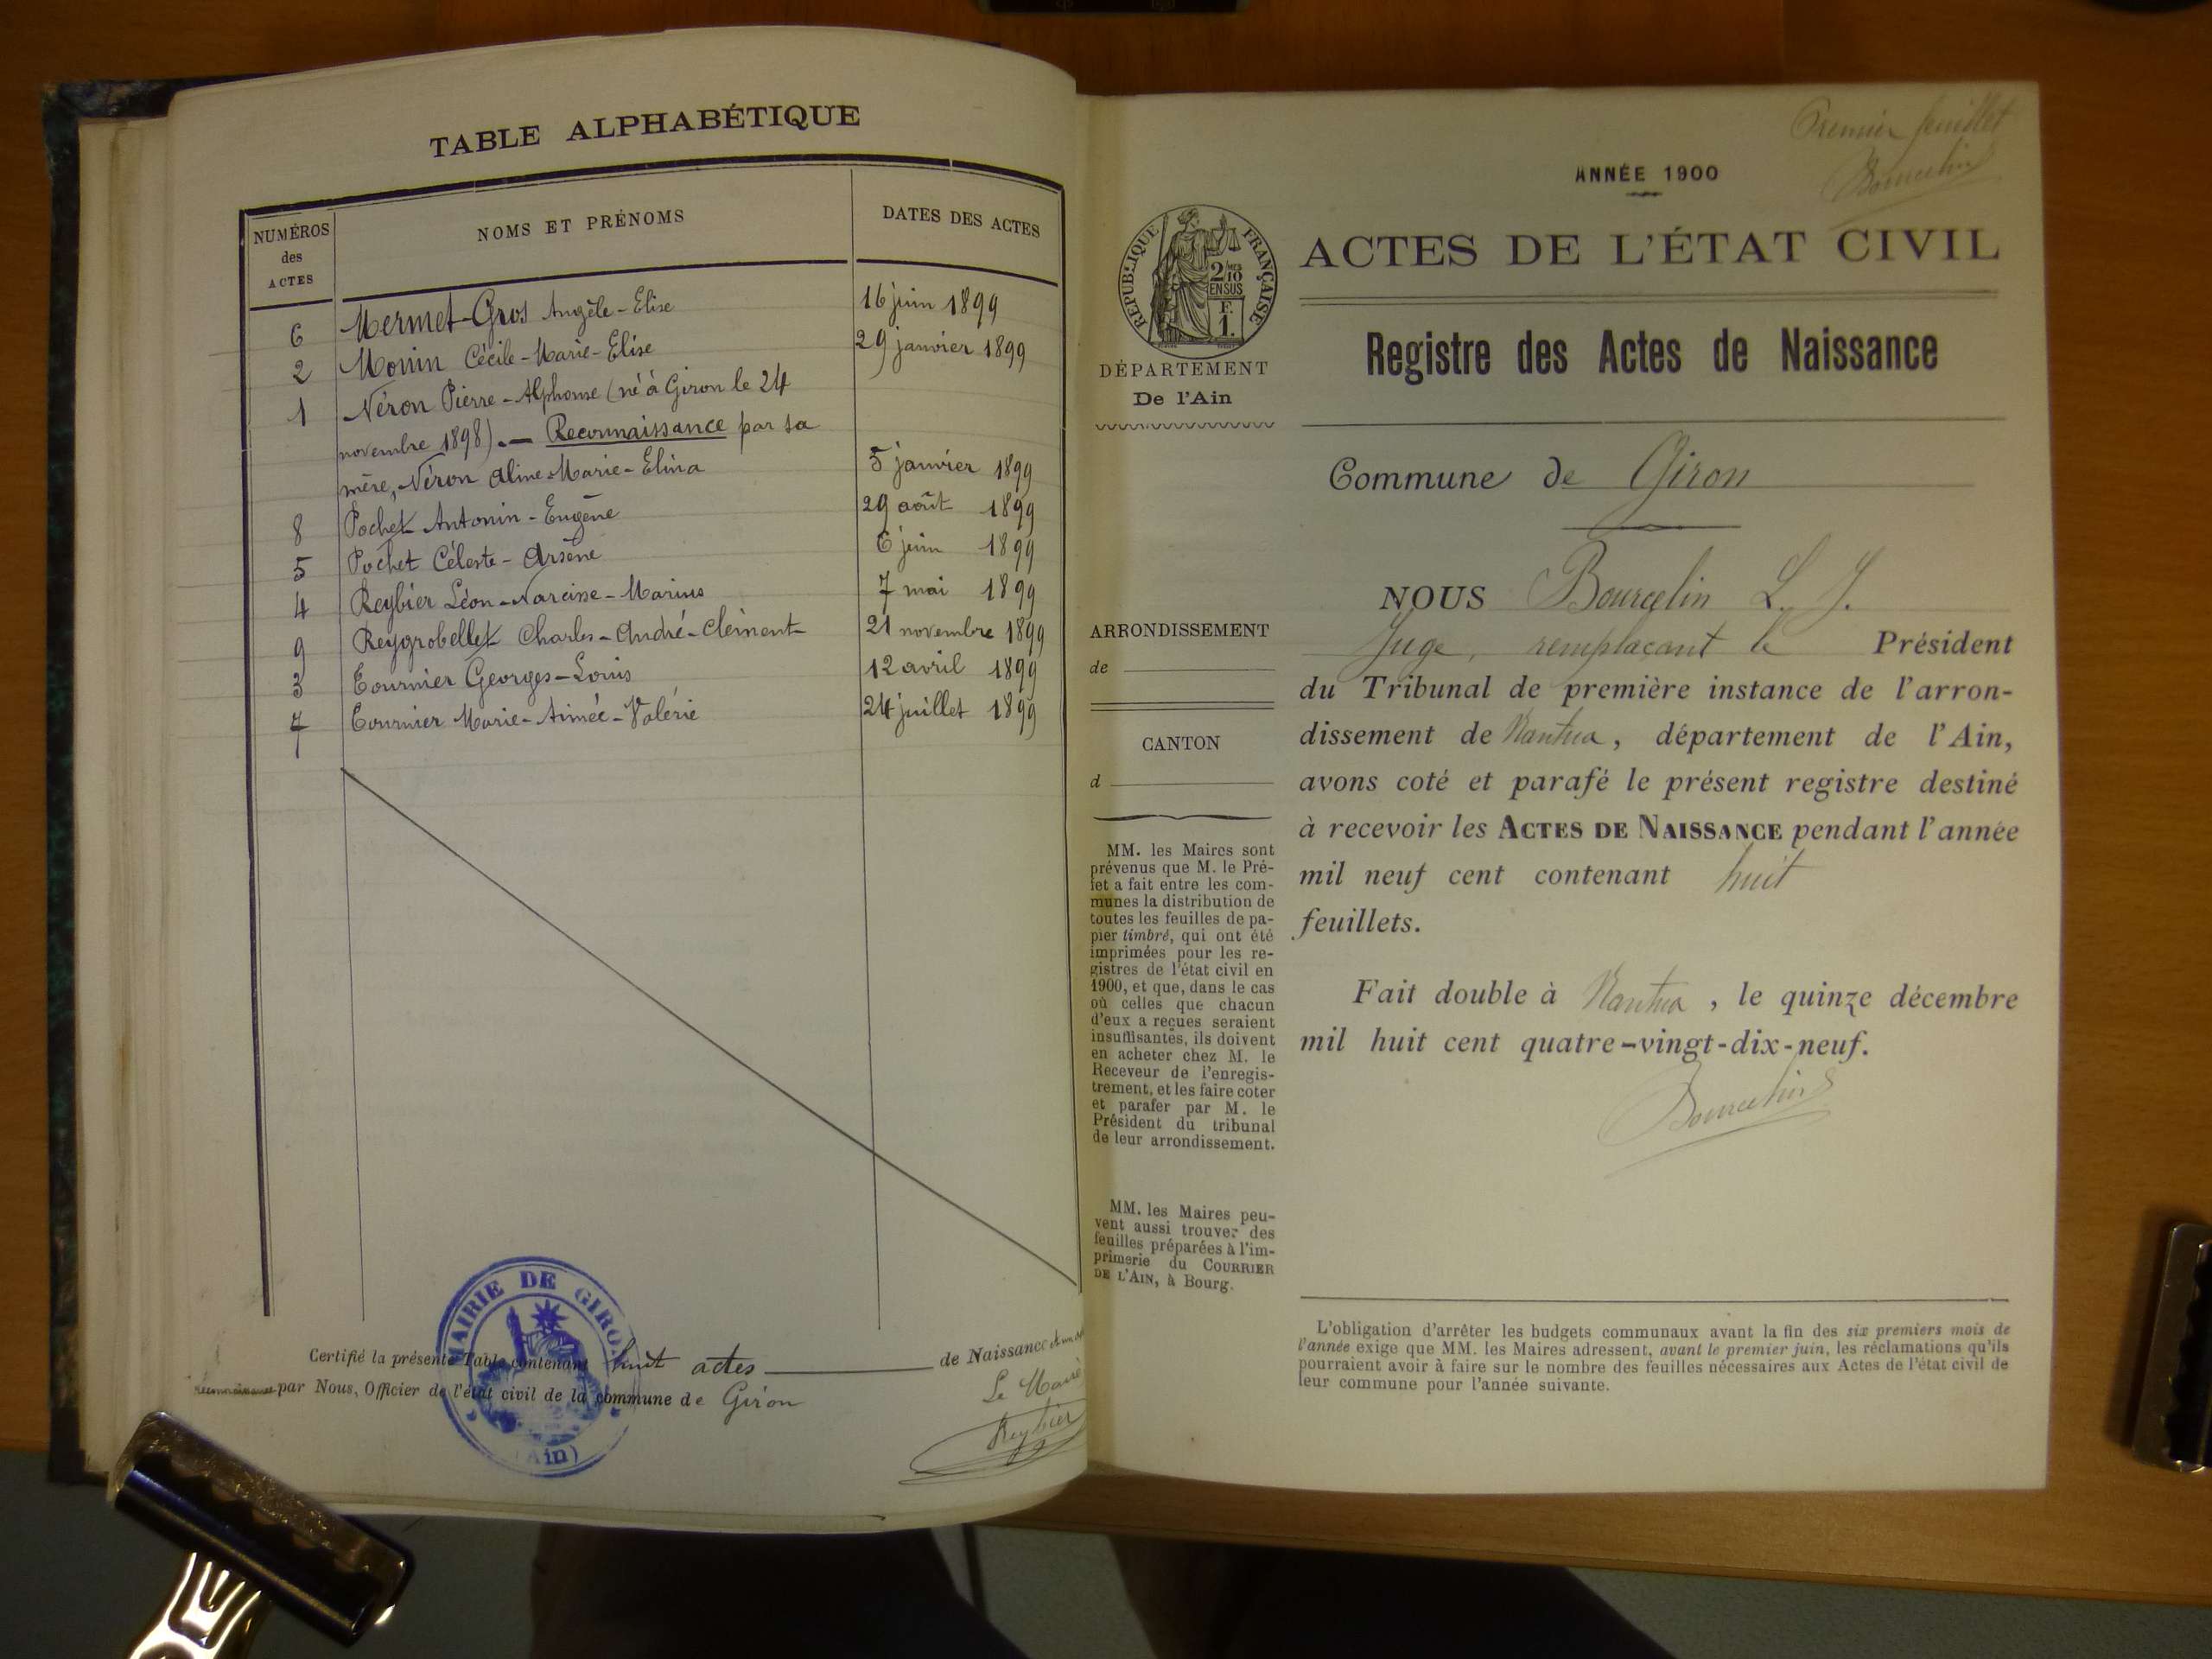 TABLE ALPHABÉTIQUE
NUMÉROS
des
ACTES
NOMS ET PRÉNOMS
DATES DES ACTES
6 Mermet-Gros Angèle-Elise 16 juin 1899
2 Monin Cécile-Marie-Elise 29 janvier 1899
1 Néron Pierre-Alphonse (né à Giron le 24
novembre 1898).— Reconnaissance par sa
mère, Néron Aline-Marie-Elina 5 janvier 1899
8 Pochet Antonin-Eugène 29 août 1899
5 Pochet Céleste-Arsène 6 juin 1899
4 Reybier Léon-Narcisse-Marius 7 mai 1899
9 Reygrobellet Charles-André-Clément 21 novembre 1899
3 Tournier Georges-Louis 12 avril 1899
7 Tournier Marie-Aimée-Valérie 24 juillet 1899
MAIRIE DE GIRON
(Ain)
Certifié la présente Table contenant huit actes de Naissance et un
reconnaissance par Nous, Officier de l'état civil de la commune de Giron
Le Maire
Reybier
Premier feuillet
Bourcelin
ANNÉE 1900
RÉPUBLIQUE FRANÇAISE
2/10
EN SUS
F.
1.
ACTES DE L'ÉTAT CIVIL
Registre des Actes de Naissance
DÉPARTEMENT
De l'Ain
Commune de Giron
NOUS Bourcelin L. J.
Juge, remplaçant le Président
du Tribunal de première instance de l'arron-
dissement de Nantua, département de l'Ain,
avons coté et parafé le présent registre destiné
à recevoir les ACTES DE NAISSANCE pendant l'année
mil neuf cent contenant huit
feuillets.
Fait double à Nantua, le quinze décembre
mil huit cent quatre-vingt-dix-neuf.
Bourcelin
ARRONDISSEMENT
de
CANTON
d
MM. les Maires sont
prévenus que M. le Pré-
fet a fait entre les com-
munes la distribution de
toutes les feuilles de pa-
pier timbré, qui ont été
imprimées pour les re-
gistres de l'état civil en
1900, et que, dans le cas
où celles que chacun
d'eux a reçues seraient
insuffisantes, ils doivent
en acheter chez M. le
Receveur de l'enregis-
trement, et les faire coter
et parafer par M. le
Président du tribunal
de leur arrondissement.
MM. les Maires peu-
vent aussi trouver des
feuilles préparées à l'im-
primerie du COURRIER
DE L'AIN, à Bourg.
L'obligation d'arrêter les budgets communaux avant la fin des six premiers mois de
l'année exige que MM. les Maires adressent, avant le premier juin, les réclamations qu'ils
pourraient avoir à faire sur le nombre des feuilles nécessaires aux Actes de l'état civil de
leur commune pour l'année suivante.